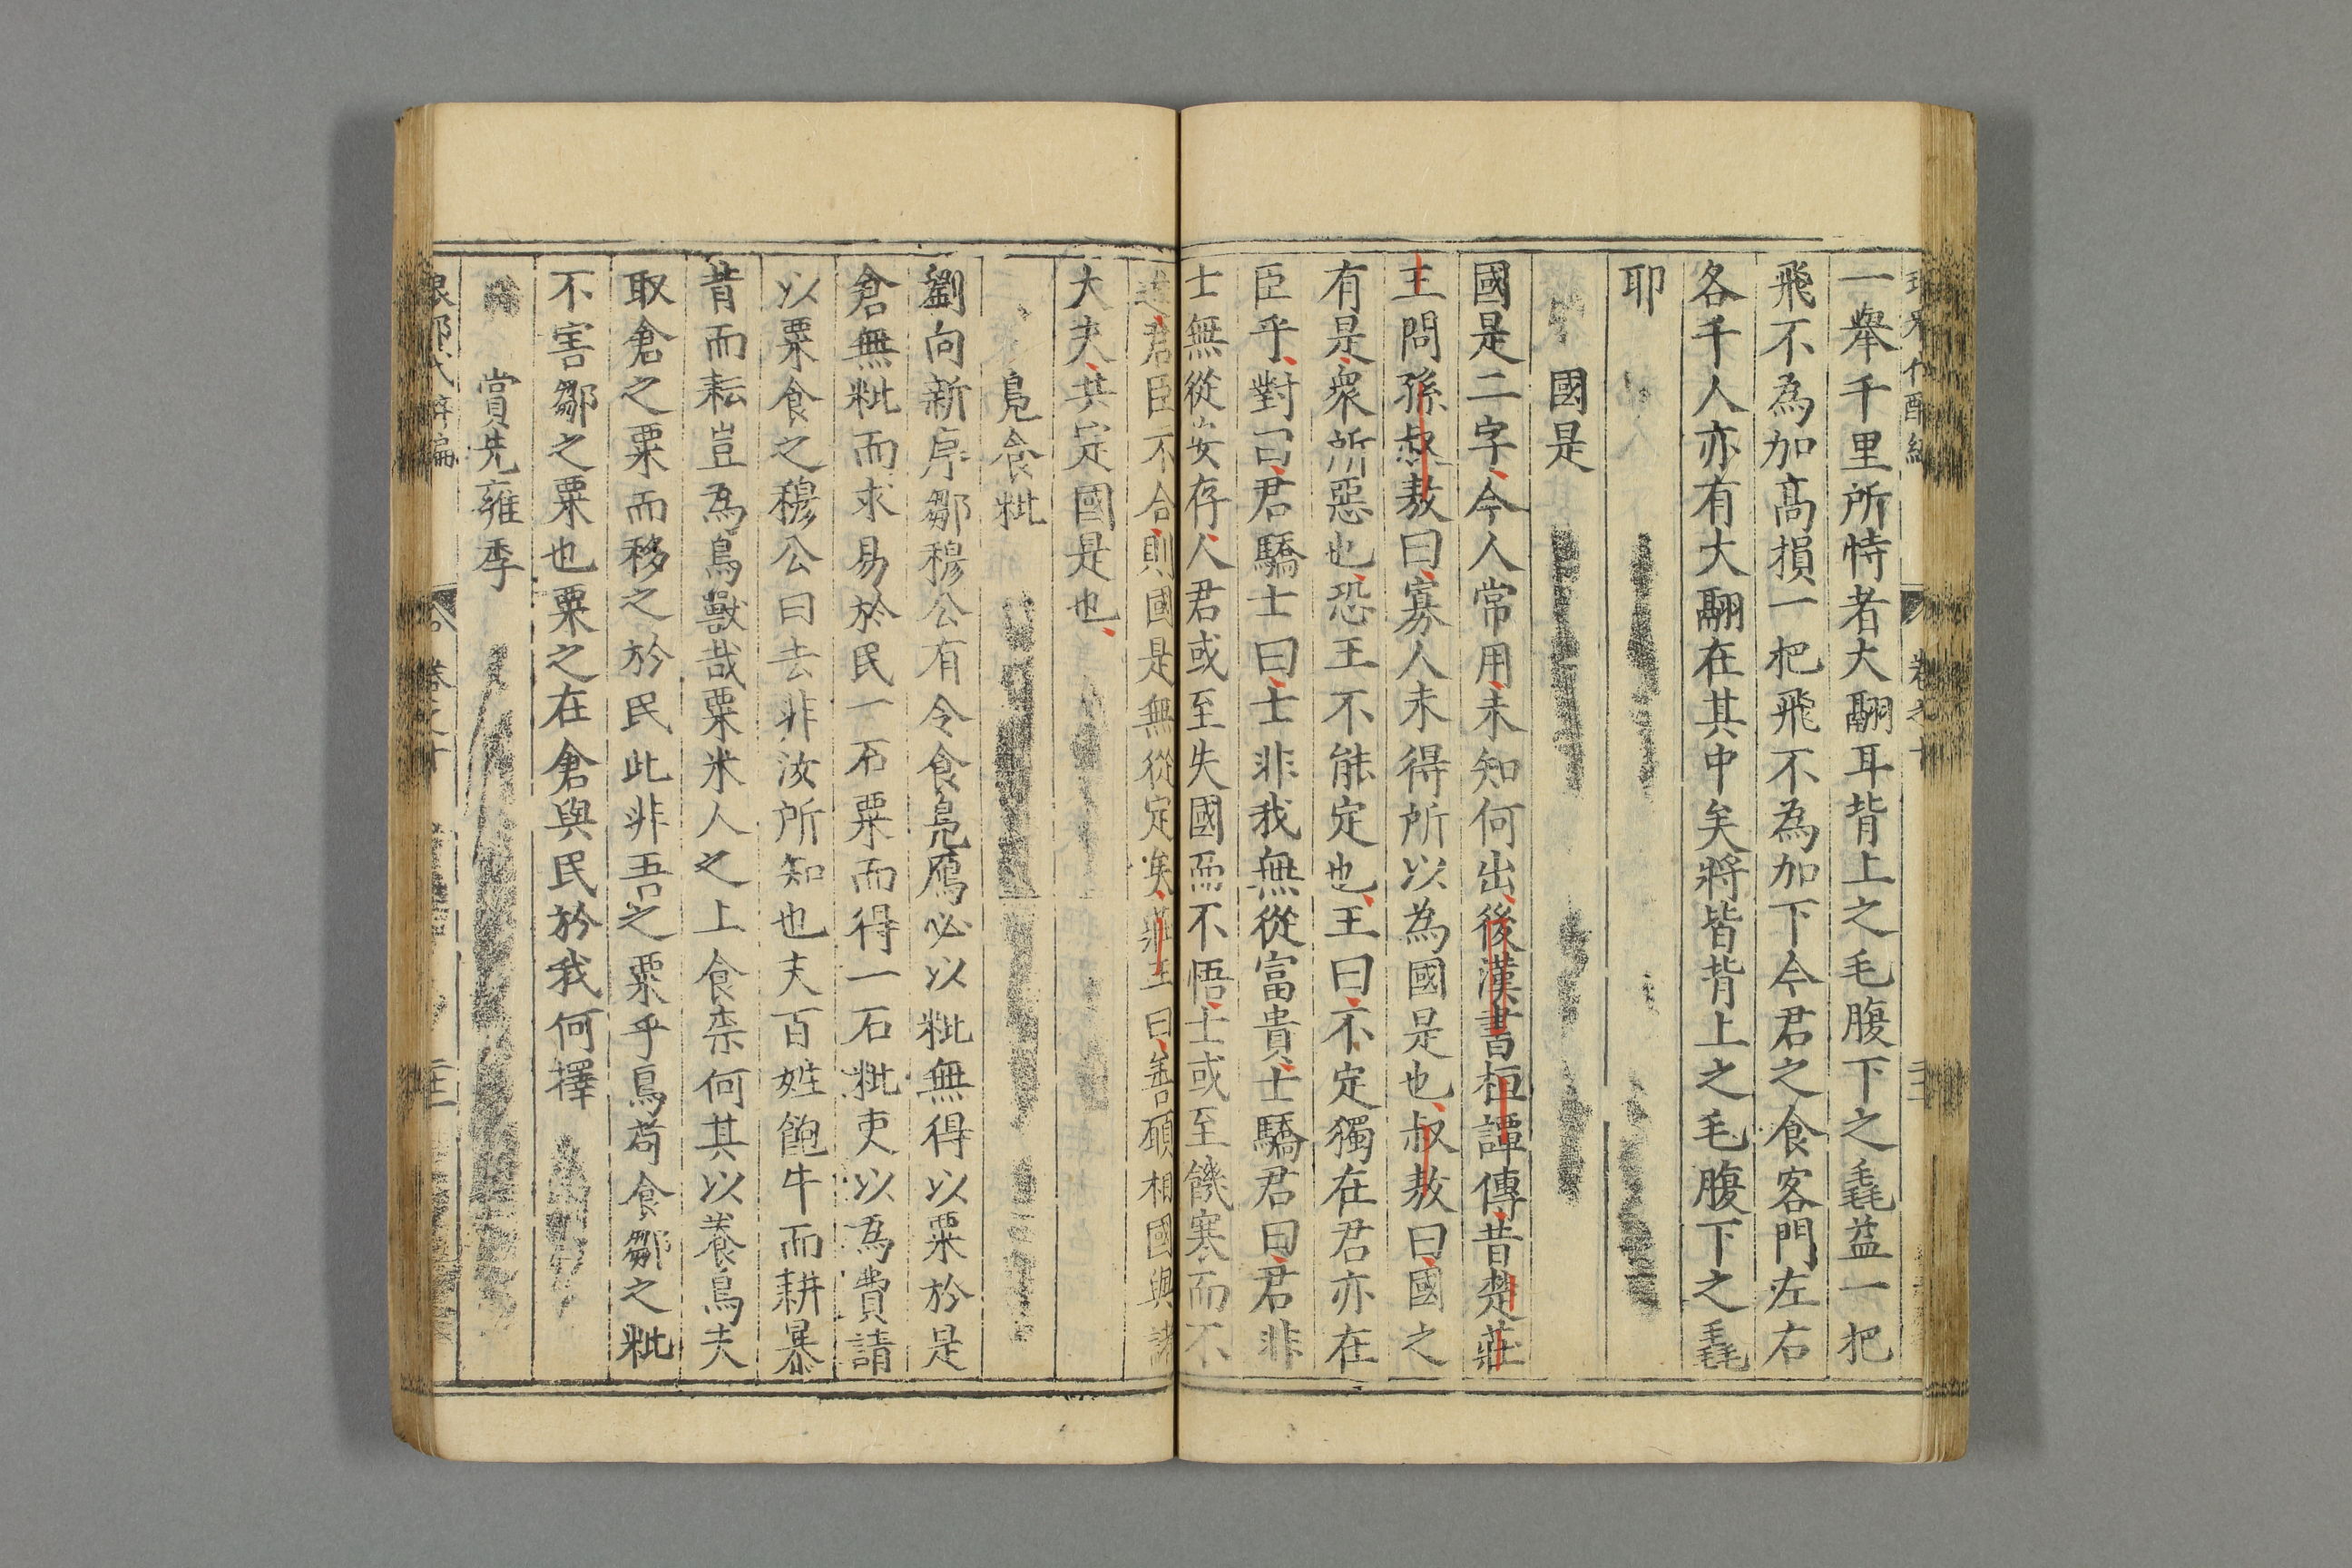 一舉千里所恃者大翮耳背上之毛腹下之毳益一把
飛不為加高損一把飛不為加下今君之食客門左右
各千人亦有大翮在其中矣將皆背上之毛腹下之毳
耶
國是
國是二字今人常用未知何出後漢書桓譚傳昔楚莊
王問孫叔敖曰寡人未得所以為國是也叔敖曰國之
有是衆所惡也恐王不能定也王曰不定獨在君亦在
臣乎對曰君驕士曰士非我無從富貴士驕君曰君非
士無從安存人君或至失國而不悟士或至饑寒而不
進君臣不合則國是無從定矣莊王曰善願相國與諸
大夫共定國是也
鳬食粃
劉向新序鄒穆公有令食鳬鴈必以粃無得以粟於是
倉無粃而求易於民一石粟而得一石粃吏以為費請
以粟食之穆公曰去非汝所知也夫百姓飽牛而耕暴
背而耘豈為鳥獸哉粟米人之上食柰何其以養鳥夫
取倉之粟而移之於民此非吾之粟乎鳥苟食鄒之粃
不害鄒之粟也粟之在倉與民於我何擇
賞先雍季